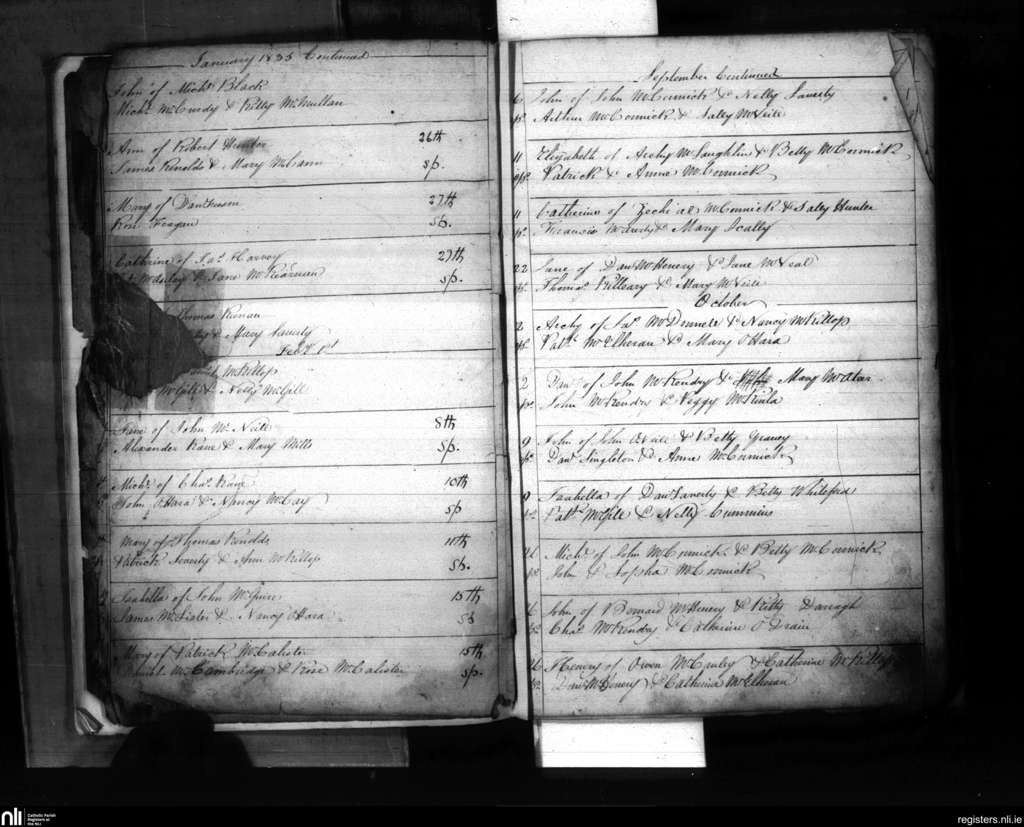 January 1835 Continued
John of Michl Black
Michl McCurdy & Kitty McMullan
Ann of Robert Hunter 26th
James Renolds & Mary McCann sp.
Mary of Danl 27th
Rose Feagan sp.
Cathrine of Jas Harvey 29th
& Jane McKearnan sp.
Thomas Kienan
& Mary Laverty
Feby 1st
McKillop
McGill & Nelly McGill
Jane of John McNeile 8th
Alexander Kane & Mary Mills sp.
Michl of Chas Kane 10th
John O'Hara & Nancy McCay sp
Mary of Thomas Renolds 11th
Patrick Laverty & Ann McKillop sp.
Isabella of John McGuire 15th
James McLister & Nancy O'Hara sp
Mary of Patrick McCalister 15th
McCambridge & Rose McCalister sp.
September Continued
6 John of John McCormick & Nelly Laverty
sps Arthur McCormick & Sally McNeile
11 Elizabeth of Archy McLaughlin & Betty McCormick
sps Patrick & Anne McCormick
11 Catherine of Zechial McCormick & Sally Hunter
sps Francis & Mary Scally
22 Jane of Danl McHenery & Jane McNeal
sps Thomas Killeary & Mary McNeile
October
2 Archy of Jas McDonnell & Nancy McKillop
sps Patk McElheran & Mary O'Hara
2 Danl of John McKendry & Mary McAtar
sps John McKendry & Peggy McKinla
9 John of John O'Neile & Betty Graney
sps Danl Singleton & Anne McCormick
9 Isabella of Danl Laverty & Betty Whiteford
sps Patk McGill & Nelly Cummins
Michl of John McCormick & Betty McCormick
sps John & McCormick
John of Bernard McHenery & Kitty Darragh
sps Chas McKendry & Catherine O'Drain
26 Henery of Owen McCurley & Catherine McKillop
sps Danl McHenery & Catherine McElheran
nli
Catholic Parish
Registers at
the NLI
registers.nli.ie